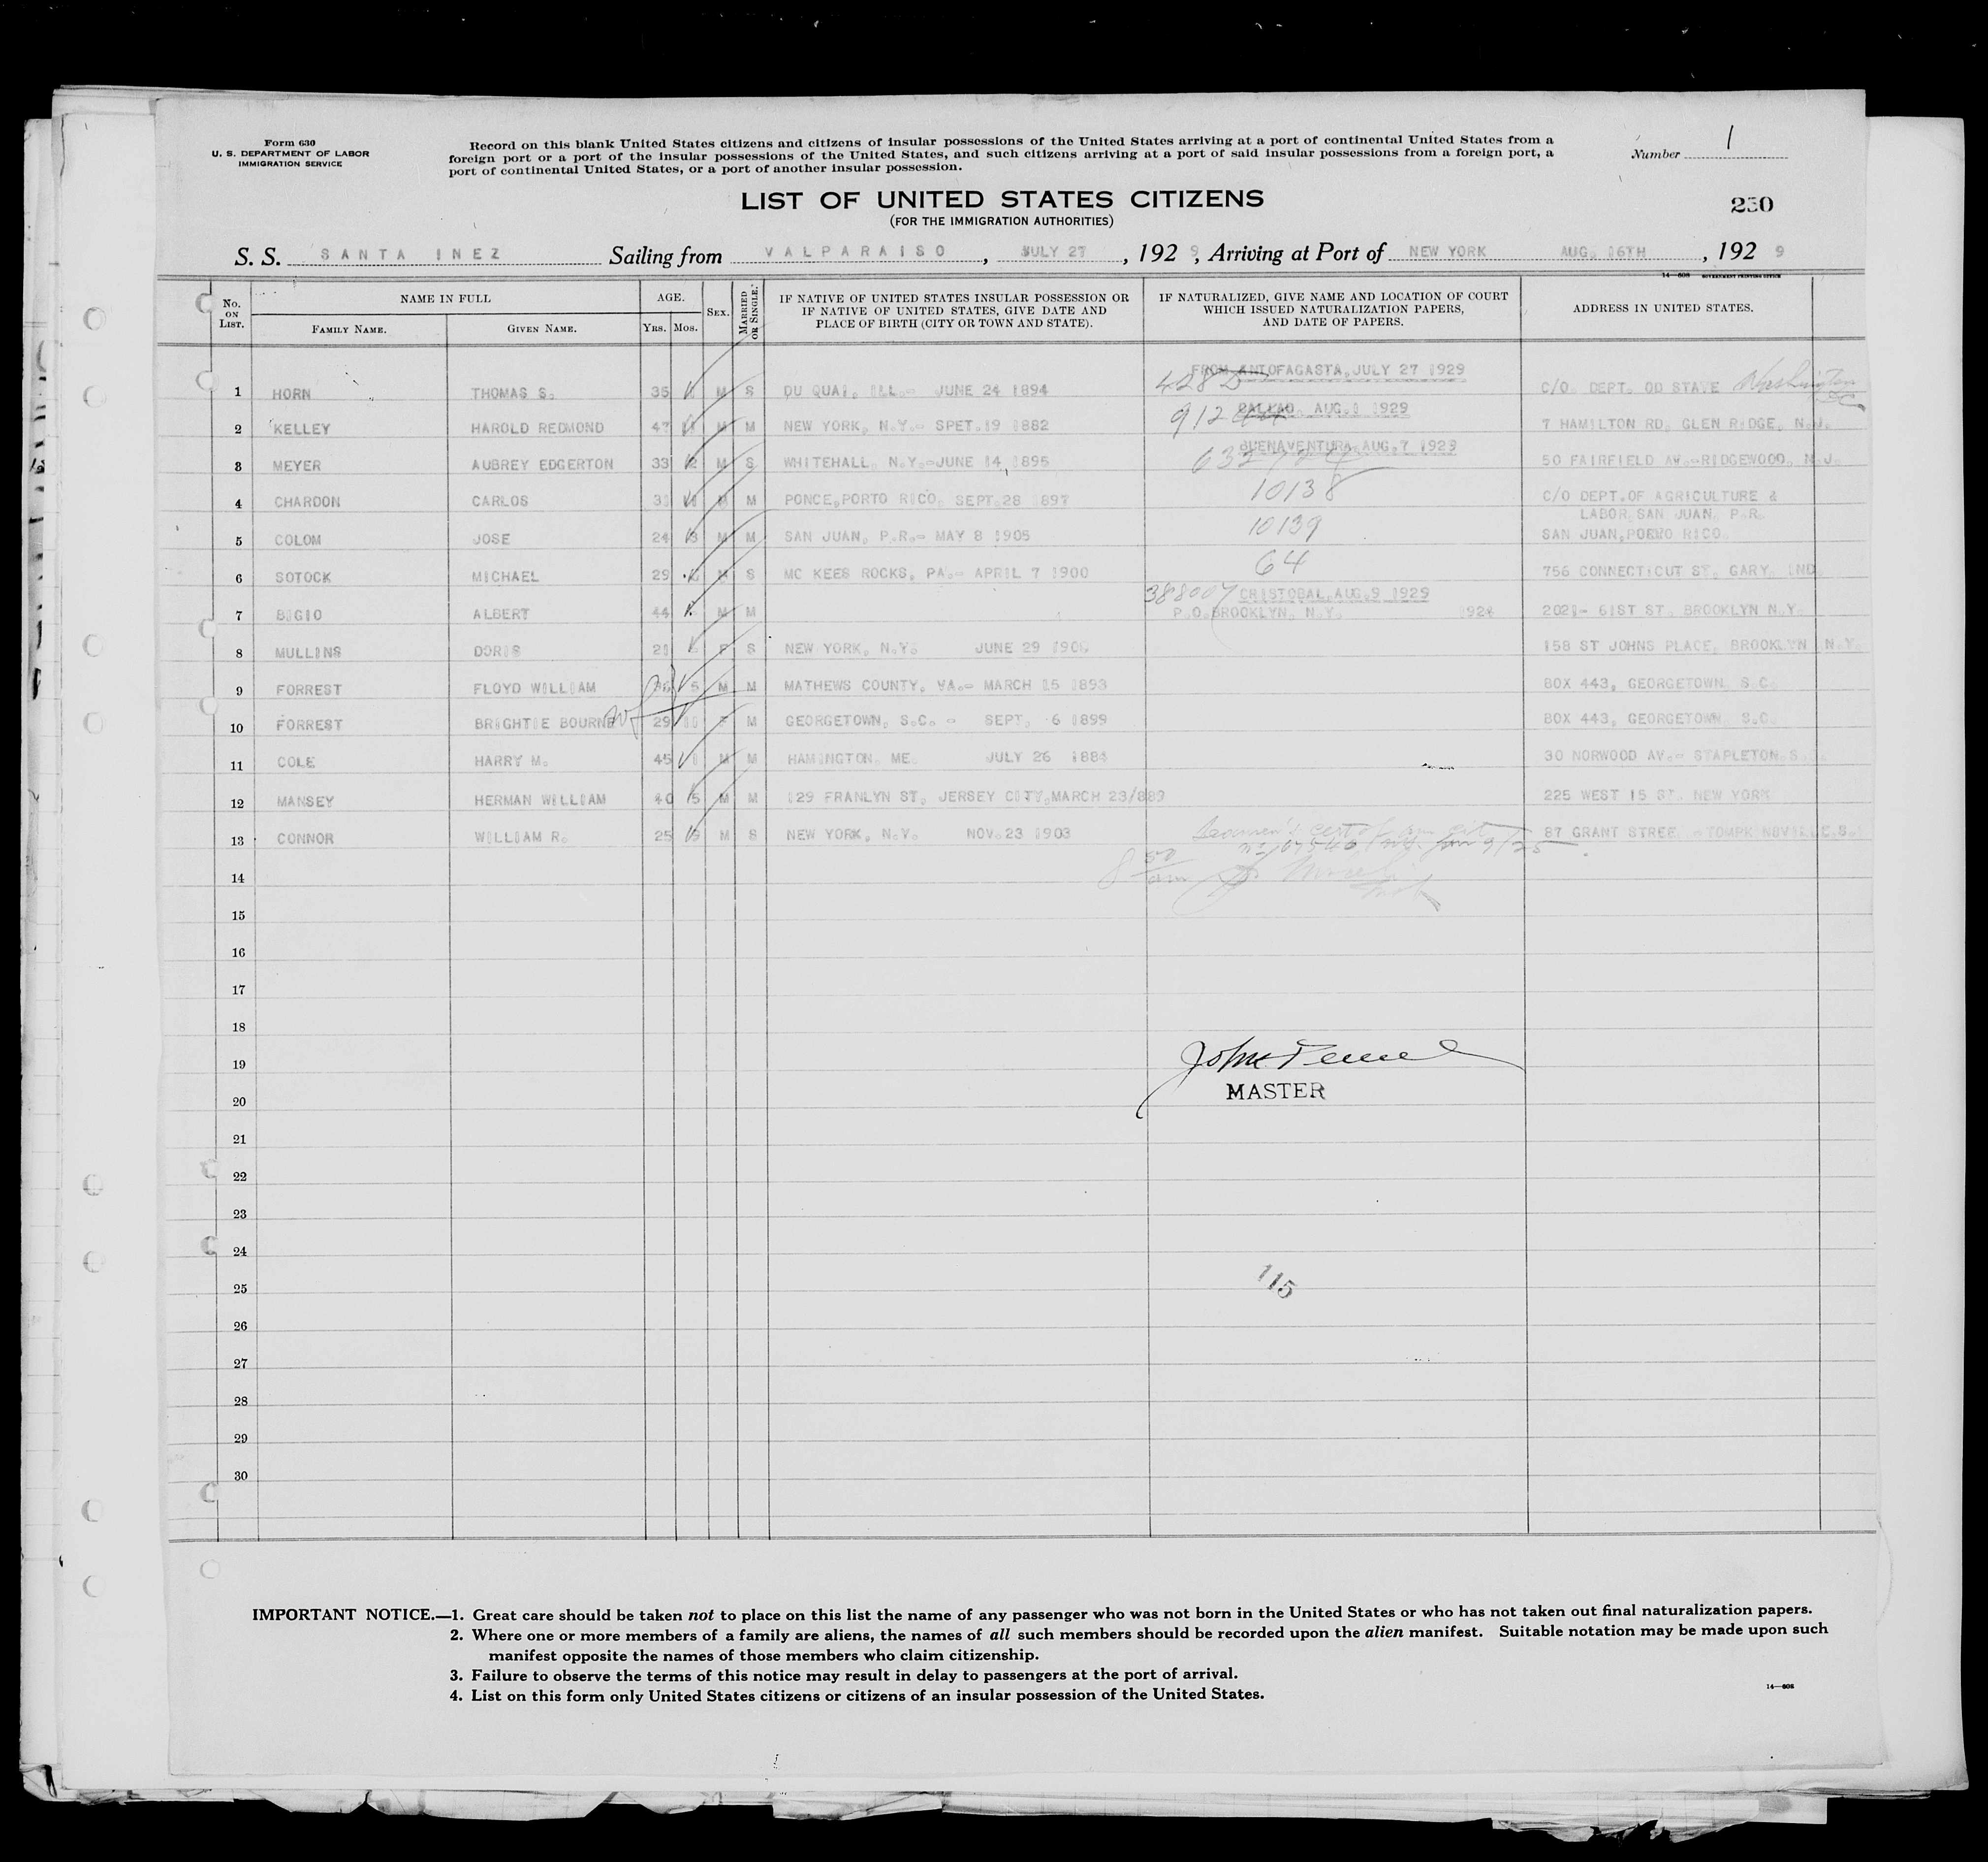 Form 630
U. S. DEPARTMENT OF LABOR
IMMIGRATION SERVICE
Record on this blank United States citizens and citizens of insular possessions of the United States arriving at a port of continental United States from a
foreign port or a port of the insular possessions of the United States, and such citizens arriving at a port of said insular possessions from a foreign port, a
port of continental United States, or a port of another insular possession.
Number 1
LIST OF UNITED STATES CITIZENS
(FOR THE IMMIGRATION AUTHORITIES)
230
S. S. SANTA INEZ Sailing from VALPARAISO, JULY 27, 1929, Arriving at Port of NEW YORK AUG. 16TH, 1929
14-608 GOVERNMENT PRINTING OFFICE
No. ON LIST. NAME IN FULL FAMILY NAME. GIVEN NAME. AGE. YRS. MOS. SEX. MARRIED OR SINGLE.
IF NATIVE OF UNITED STATES INSULAR POSSESSION OR
IF NATIVE OF UNITED STATES, GIVE DATE AND
PLACE OF BIRTH (CITY OR TOWN AND STATE).
IF NATURALIZED, GIVE NAME AND LOCATION OF COURT
WHICH ISSUED NATURALIZATION PAPERS,
AND DATE OF PAPERS.
ADDRESS IN UNITED STATES.
FROM ANTOFAGASTA, JULY 27 1929
1 HORN THOMAS S. 35 M S DU QUAI, ILL.- JUNE 24 1894 C/O DEPT. OD STATE Washington DC
CALLAO, AUG. 1 1929
2 KELLEY HAROLD REDMOND 47 M M NEW YORK, N.Y.- SPET.19 1882 912 7 HAMILTON RD. GLEN RIDGE, N.J.
BUENAVENTURA, AUG. 7 1929
3 MEYER AUBREY EDGERTON 33 M S WHITEHALL, N.Y.-JUNE 14, 1895 50 FAIRFIELD AV.-RIDGEWOOD, N.J.
4 CHARDON CARLOS M M PONCE,PORTO RICO. SEPT.28 1897 10138 C/O DEPT.OF AGRICULTURE &
LABOR, SAN JUAN, P.R.
5 COLOM JOSE 24 M M SAN JUAN, P.R.- MAY 8 1905 10139 SAN JUAN,PORTO RICO
6 SOTOCK MICHAEL 29 M S MC KEES ROCKS, PA.- APRIL 7 1900 64 756 CONNECTICUT ST. GARY, IND.
388007 CRISTOBAL, AUG. 9 1929
7 BIGIO ALBERT 44 M M P.O. BROOKLYN, N.Y. 2021- 61ST ST. BROOKLYN N.Y.
8 MULLINS DORIS F S NEW YORK, N.Y. JUNE 29 158 ST JOHNS PLACE, BROOKLYN N.Y.
9 FORREST FLOYD WILLIAM 5 M M MATHEWS COUNTY, VA.- MARCH 15 1893 BOX 443, GEORGETOWN, S.C.
10 FORREST BRIGHTIE BOURNE 29 F M GEORGETOWN, S.C. - SEPT. 6 1899 BOX 443, GEORGETOWN, S.C.
11 COLE HARRY M. 45 M M HAMINGTON, ME. JULY 26 30 NORWOOD AV.- STAPLETON,S.
12 MANSEY HERMAN WILLIAM 40 5 M M 129 FRANLYN ST. JERSEY CITY,MARCH 23/889 225 WEST 15 ST. NEW YORK
13 CONNOR WILLIAM R. 25 M S NEW YORK, N.Y. NOV. 23 1903 Seamen's cert of 87 GRANT STREE
14
15
16
17
18
19
John
20
MASTER
21
22
23
24
25
115
26
27
28
29
30
IMPORTANT NOTICE.—1. Great care should be taken not to place on this list the name of any passenger who was not born in the United States or who has not taken out final naturalization papers.
2. Where one or more members of a family are aliens, the names of all such members should be recorded upon the alien manifest. Suitable notation may be made upon such
manifest opposite the names of those members who claim citizenship.
3. Failure to observe the terms of this notice may result in delay to passengers at the port of arrival.
4. List on this form only United States citizens or citizens of an insular possession of the United States.
14—608